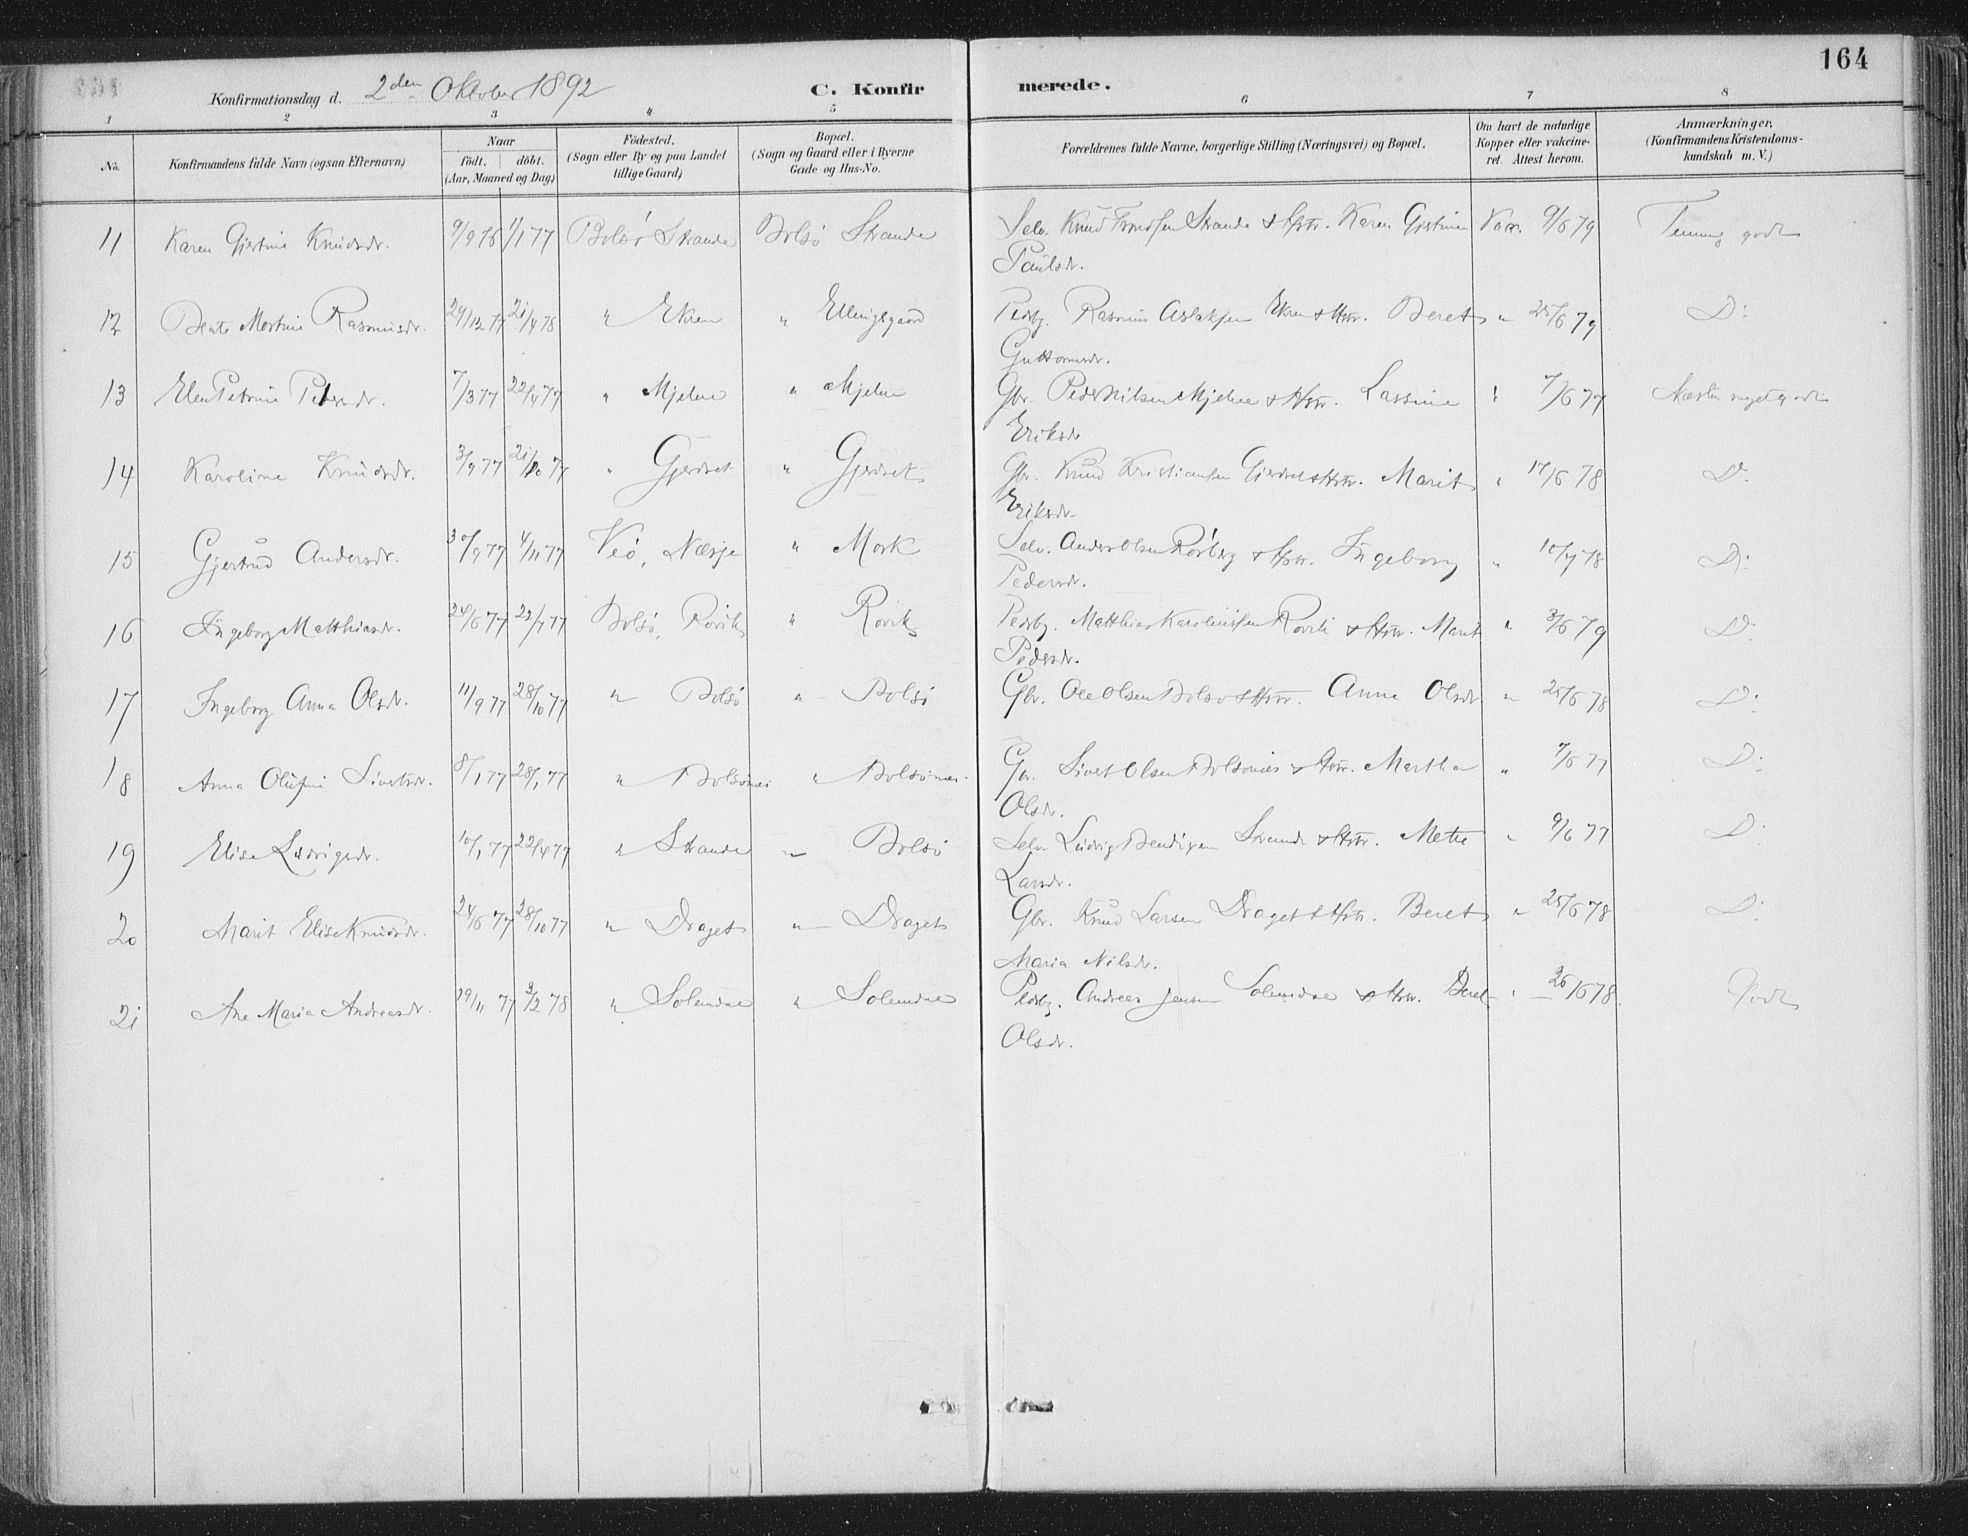 164
Konfirmationsdag d. 2den Oktober 1892 C. Konfirmerede.
1 2 3 4 5 6 7 8
No. Konfirmandens fulde Navn (ogsaa Efternavn) Naar födt. döbt. (Aar, Maaned og Dag) Födested. (Sogn eller By og paa Landet tillige Gaard) Bopæl. (Sogn og Gaard eller i Byerne Gade og Hus-No. Forældrenes fulde Navne, borgerlige Stilling (Næringsvei) og Bopæl. Om havt de naturlige Kopper eller vakcineret. Attest herom. Anmærkninger. (Konfirmandens Kristendomskundskab m. V.)
11 Karen Gjertine Knudsdr. 9/9 76 1/1 77 Bolsö Strande Bolsö Strande Selv. Knud Strande & Hstr. Karen Gjertine Vacc. 9/6 79 godt
Paulsdr.
12 Beate Martine Rasmusdr. 29/12 77 21/4 78 " Ekren " Ellingsgaard Rasmus Aslaksen Ekren & Hstr. Beret " 25/6 79 Do
Guttormsdr.
13 Elen Petrine Pedersdr. 7/3 77 22/4 77 " Mjelve " Mjelve Gbr. Peder Nilsen Mjelve & Hstr. Lassine " 7/6 77 Næsten meget godt
Eriksdr
14 Karoline Knudsdr. 3/9 77 21/10 77 " Gjerdset " Gjerdset Gbr. Knud Kristiansen Gjerdset & Hstr. Marit " 17/6 78 Do
Eriksdr
15 Gjertrud Andersdr. 30/9 77 4/11 77 Veö, Næsje " Mork Selv. Anders Olsen Rörberg & Hstr. Ingeborg " 10/7 78 Do
Pedersdr.
16 Ingeborg Matthiasdr. 24/6 77 22/7 77 Bolsö, Rövik " Rövik Matthias Rövik & Hstr. Marit " 3/6 79 Do
Pedersdr.
17 Ingeborg Anna Olsdr. 11/9 77 28/10 77 " Bolsö " Bolsö Gbr. Ole Olsen Bolsö & Hstr. Anna Olsdr " 25/6 78 Do
18 Anna Olufine Sivertsdr. 8/1 77 28/1 77 " Bolsönes " Bolsönes Sivert Olsen Bolsönes & Hstr. Martha " 7/6 77 Do
Olsdr.
19 Elise Ludvigsdr. 10/1 77 22/4 77 " Strande " Bolsö Selv. Ludvig Strande & Hstr. Mette " 9/6 77 Do
Larsdr.
20 Marit Elise Knudsdr. 24/6 77 28/10 77 " Draget " Draget Gbr. Knud Larsen Draget & Hstr. Beret " 25/6 78 Do
Maria Nilsdr.
21 Ane Maria Andreasdr. 19/11 77 3/2 78 " Solemdne " Solemdne Andreas Jensen Solemdne & Hstr. Beret " 26/6 78 Godt
Olsdr.